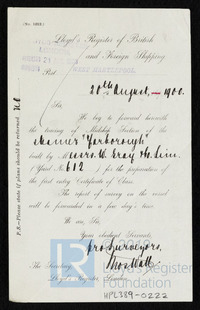 (No. 1012.)
Lloyd's Register of British
and Foreign Shipping
Port WEST HARTLEPOOL.
28th August, 1900.
Sir,
I beg to forward herewith
the tracing of Midship Section of the
steamer "Yarborough"
built by Messrs. W. Gray & Co. Lim.
(Yard No. 612) for the preparation of
the first entry Certificate of Class.
The report of survey on the vessel
will be forwarded in a few day's time.
Sir,
Your obedient Servants,
pro Surveyors,
The Secretary,
Lloyd's Register, London.
P.S.—Please state if plans should be returned. No
Lloyd's Register
Foundation
HPL389-0222